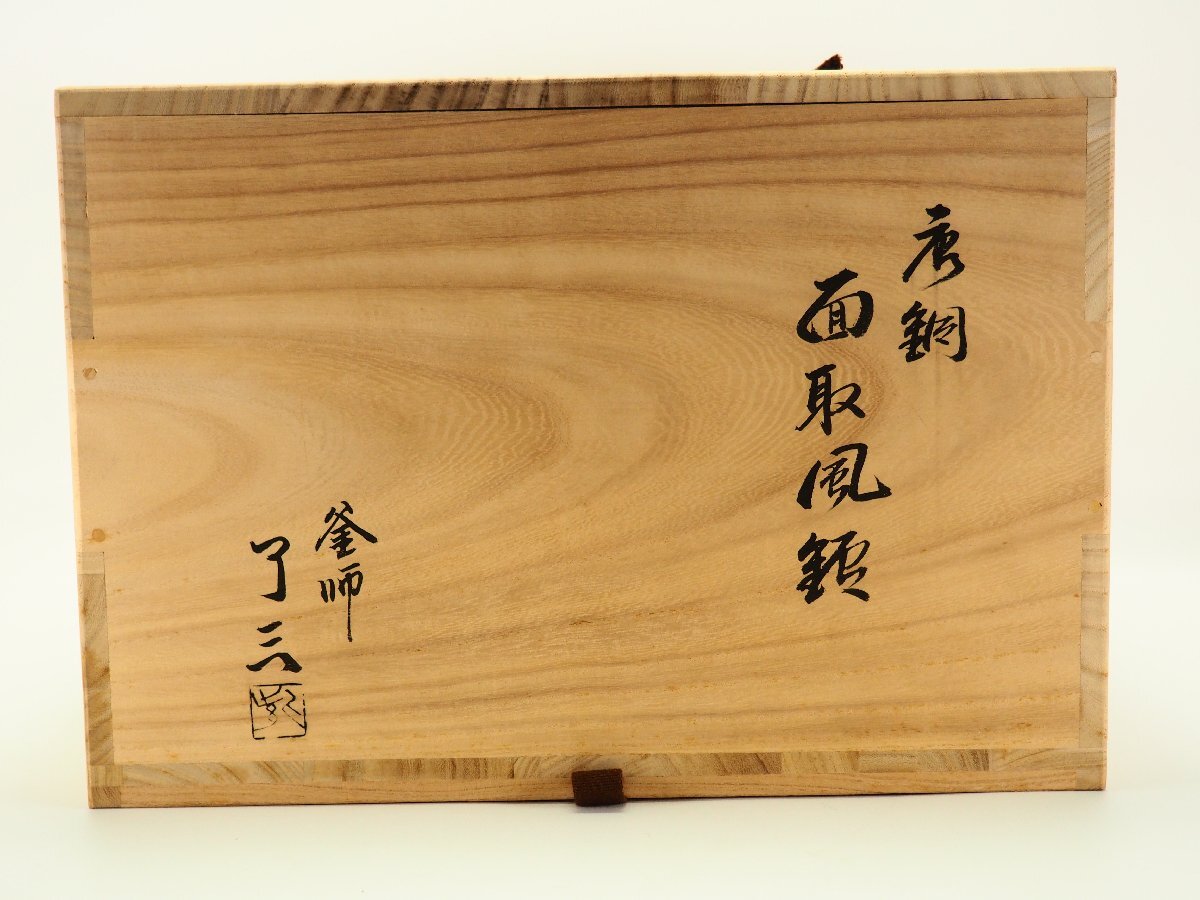 唐銅
面取風鎮
釜師
了三